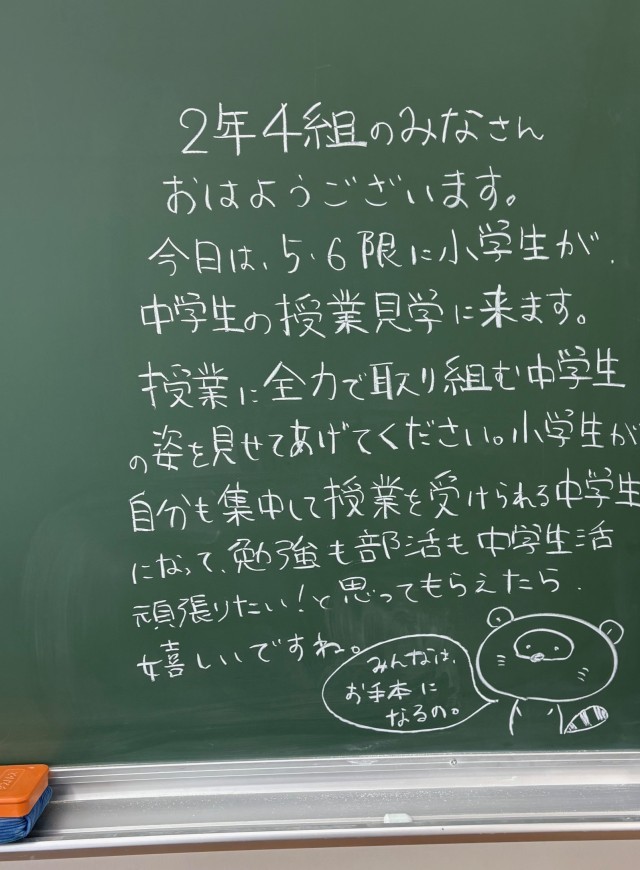 2年4組のみなさん
おはようございます。
今日は、5・6限に小学生が、
中学生の授業見学に来ます。
授業に全力で取り組む中学生
の姿を見せてあげてください。小学生が
自分も集中して授業を受けられる中学生
になって、勉強も部活も中学生活
頑張りたい!と思ってもらえたら、
嬉しいですね。
みんなは、
お手本に
なるの。